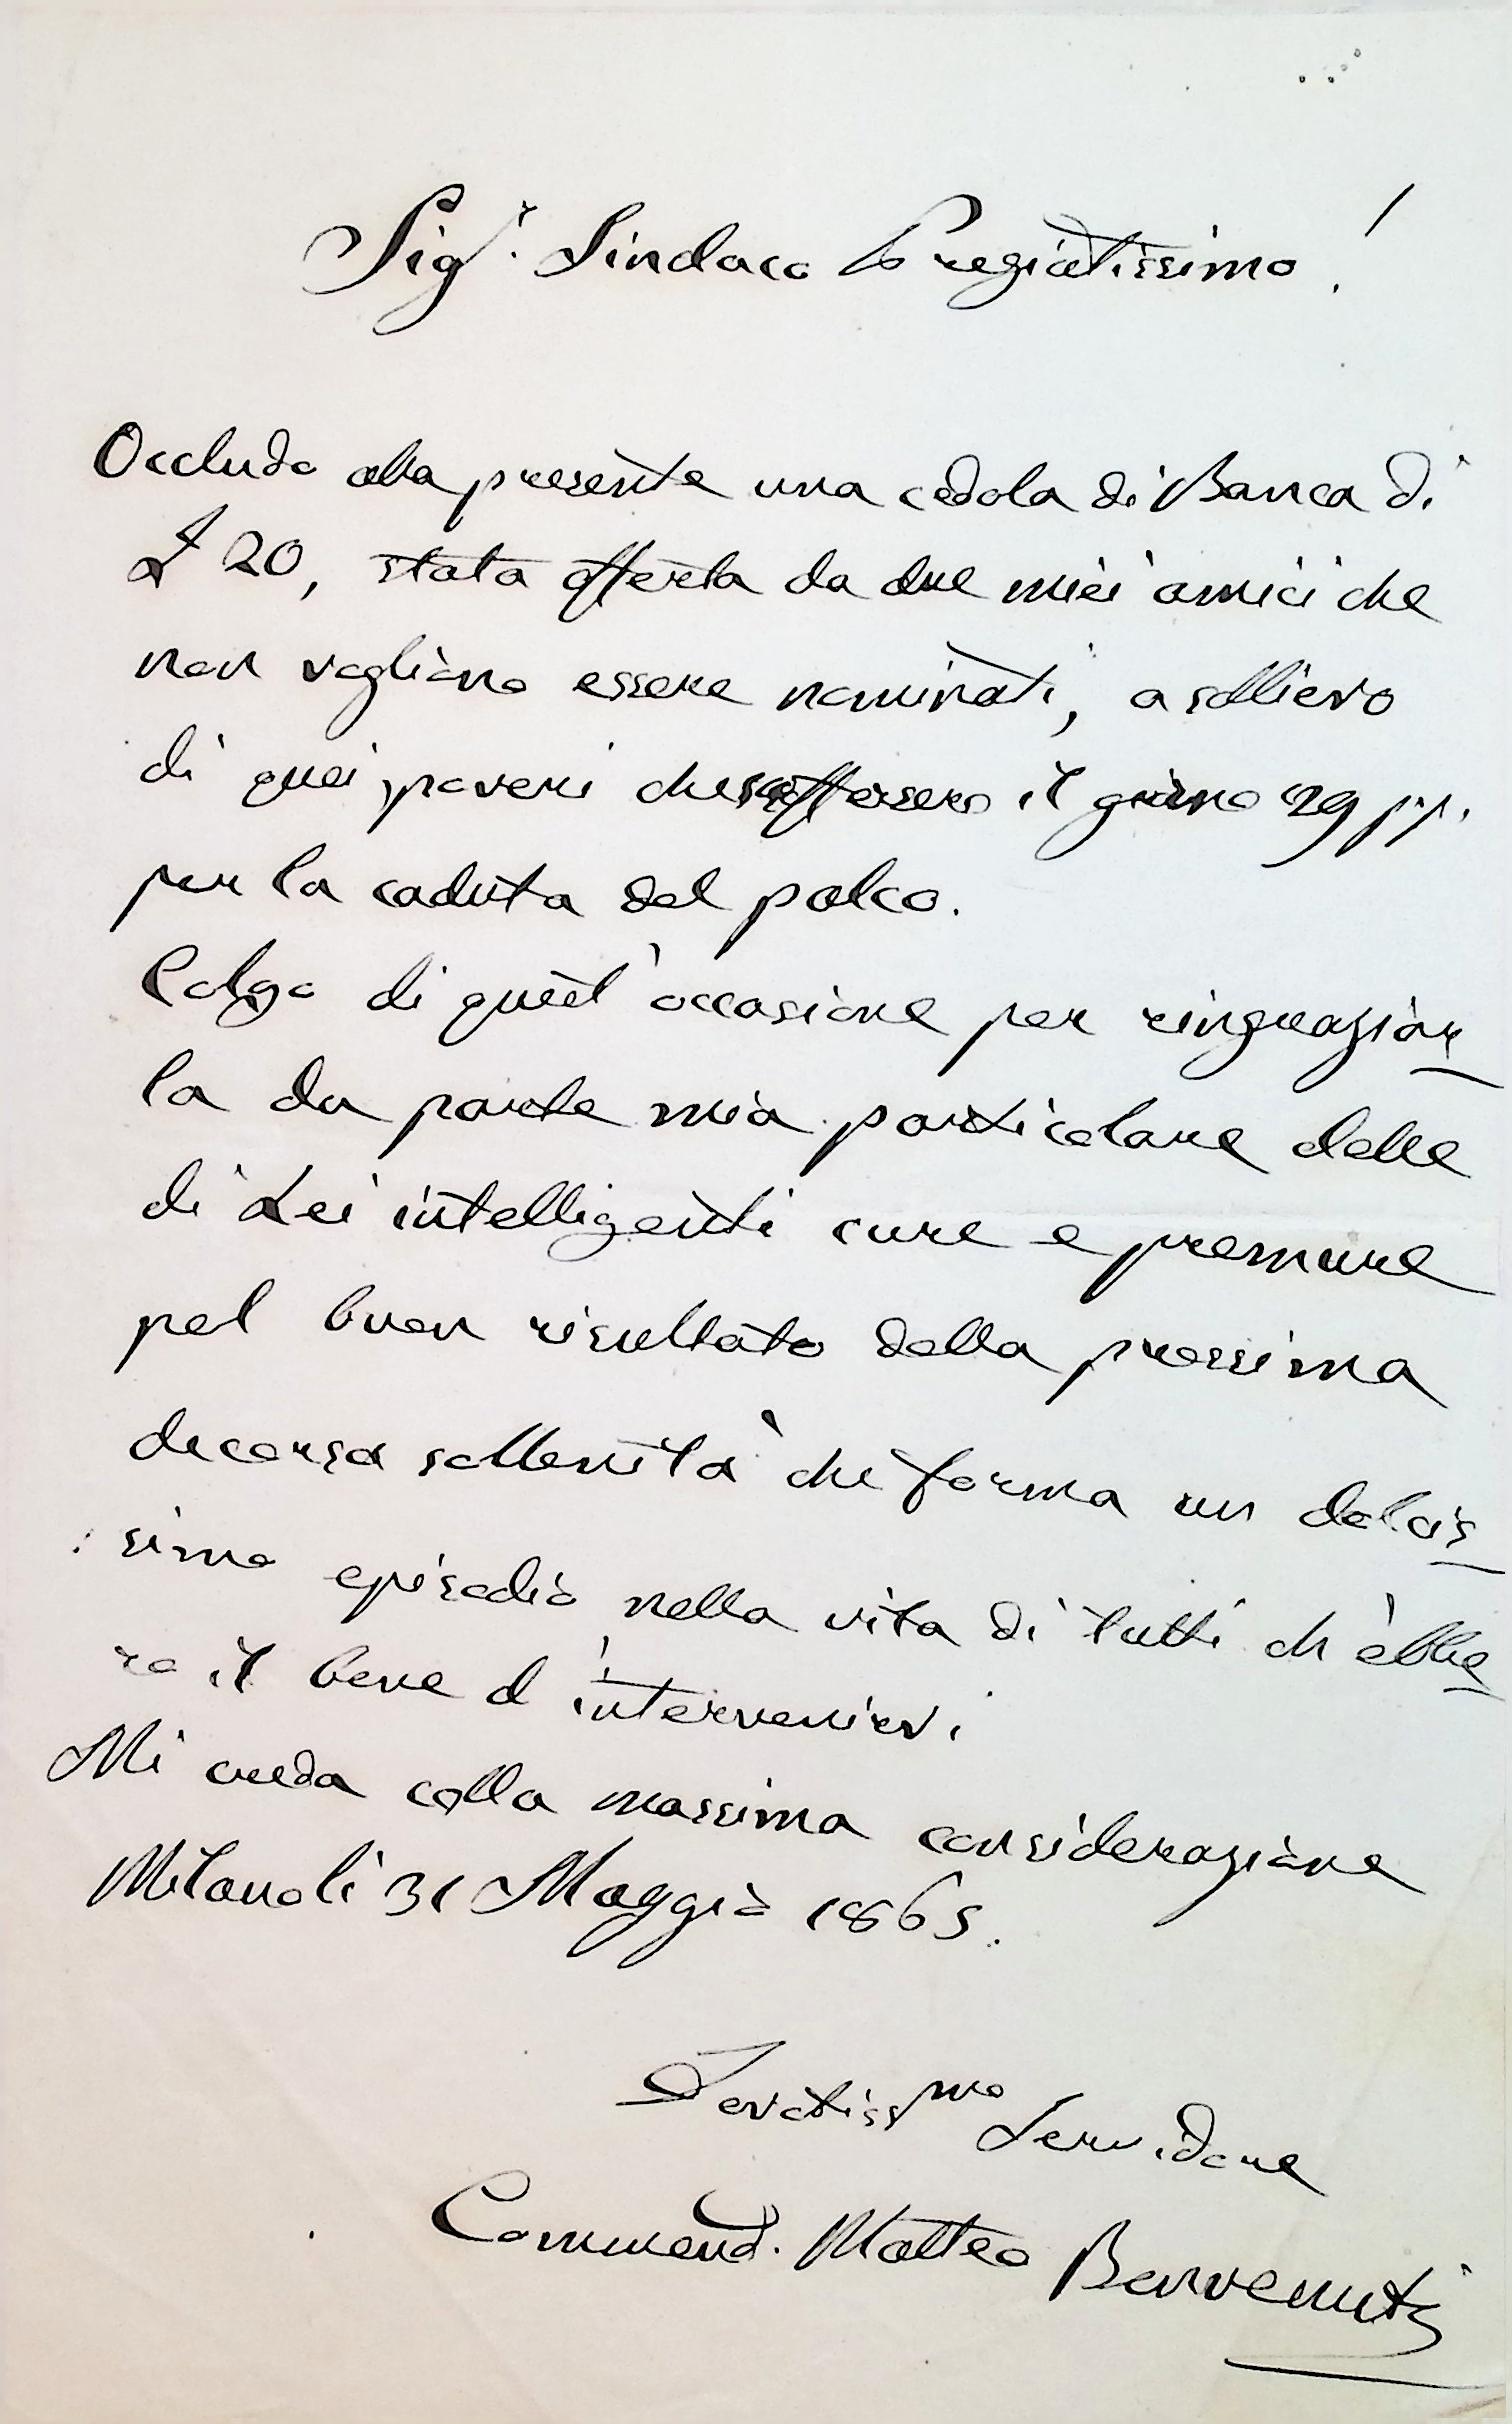 Sig.r Sindaco Pregiatissimo!
Occludo alla presente una cedola di Banca di
£ 20, stata offerta da due miei amici che
non vogliono essere nominati, a sollievo
di quei poveri che soffersero il giorno 29 p.p.
per la caduta del palco.
Colgo di quest'occasione per ringraziar
la da parte mia particolare delle
di Lei intelligenti cure e premure
pel buon risultato della prossima
decorsa sollenità che forma un dolcis
simo episodio nella vita di tutti ch'ebbe
ro il bene d'intervenirvi
Mi creda colla massima considerazione
Milano li 31 Maggio 1865.
Devotissmo Servidore
Commend. Matteo Benvenuti